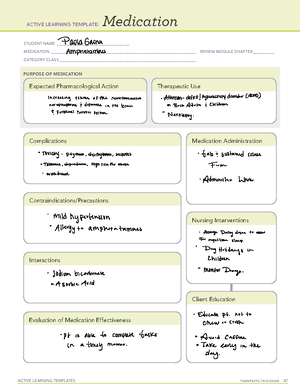 ACTIVE LEARNING TEMPLATE: Medication
STUDENT NAME Paola Gaona
MEDICATION Amphetamines REVIEW MODULE CHAPTER
CATEGORY CLASS
PURPOSE OF MEDICATION
Expected Pharmacological Action
Increasing release of the neurotransmitters
norepinephrine & dopamine in the brain
& peripheral nervous system.
Therapeutic Use
• Attention-deficit/hyperactivity disorder (ADHD)
in Both Adults & Children
• Narcolepsy.
Complications
• Toxicity - Dizziness,
• Tolerance, dependence,
• withdrawal
Medication Administration
• tab & sustained release
Form
• Administer
Contraindications/Precautions
• Mild hypertension
• Allergy to amphetamines
Nursing Interventions
• Assess
sleep
• Drug Holidays in
Children
• Monitor
Interactions
• Sodium bicarbonate
• Ascorbic Acid
Client Education
• Educate pt. not to
chew or crush
• Avoid Caffeine
• Take early in the
day.
Evaluation of Medication Effectiveness
• pt is able to complete tasks
in a timely manner.
ACTIVE LEARNING TEMPLATES
THERAPEUTIC PROCEDURE